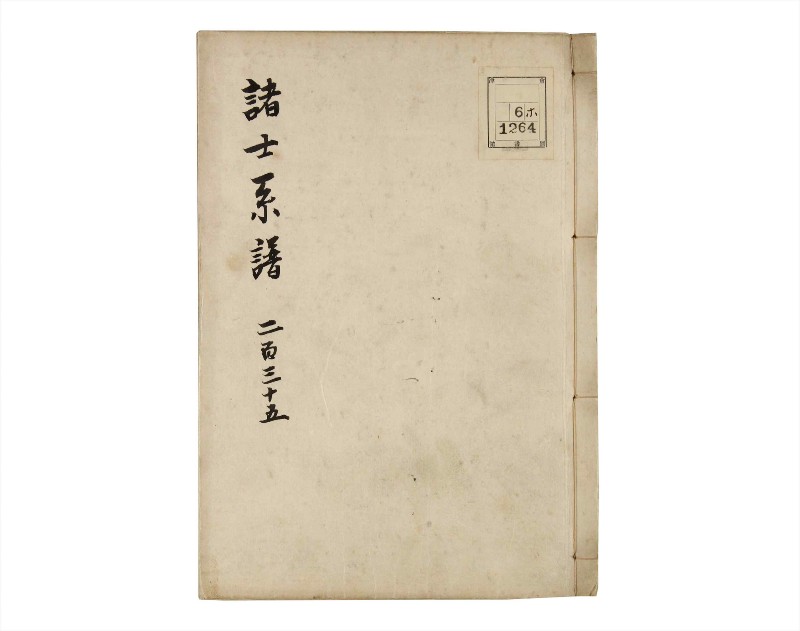 諸士系譜 二百三十五
6ホ
1264